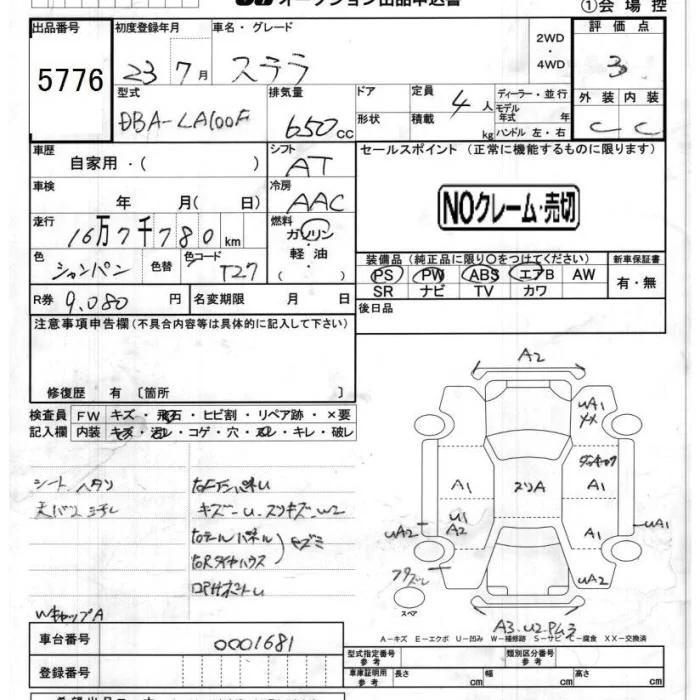 オークション出品申込書 ①会場控
出品番号 初度登録年月 車名・グレード 2WD 評価点
5776 23 7月 ステラ 4WD 3
型式 排気量 ドア 定員 4人 ディーラー・並行 外装 内装
DBA-LA100F 650cc 形状 積載 kg モデル年式 年 C C
ハンドル 左・右
車歴 シフト セールスポイント (正常に機能するものに限ります)
自家用・( ) AT
車検 冷房
年 月( 日) AAC NOクレーム・売切
走行 燃料
16万7千780km ガソリン
軽油
( )
色 色替 色コード 装備品(純正品に限り○をつけてください) 新車保証書
シャンパン T27 PS PW ABS エアB AW 有・無
R券 9.080円 名変期限 月 日 SR ナビ TV カワ
注意事項申告欄(不具合内容等は具体的に記入して下さい) 後日品
修復歴 有 [箇所 ]
検査員 FW キズ・飛石・ヒビ割・リペア跡・×要
記入欄 内装 キズ・汚レ・コゲ・穴・スレ・キレ・破レ
シート ヘタリ
キズ
WキャップA
A2
A1
A1
スリA
U1
A2
A1
UA2
UA1
UA2
スペア
A3
A-キズ E-エクボ U-凹み W-補修跡 S-サビ C-腐食 XX-交換済
車台番号 0001681 型式指定番号 参考 類別区分番号 参考
登録番号 車庫証明用 参考 長さ cm 幅 cm 高さ cm